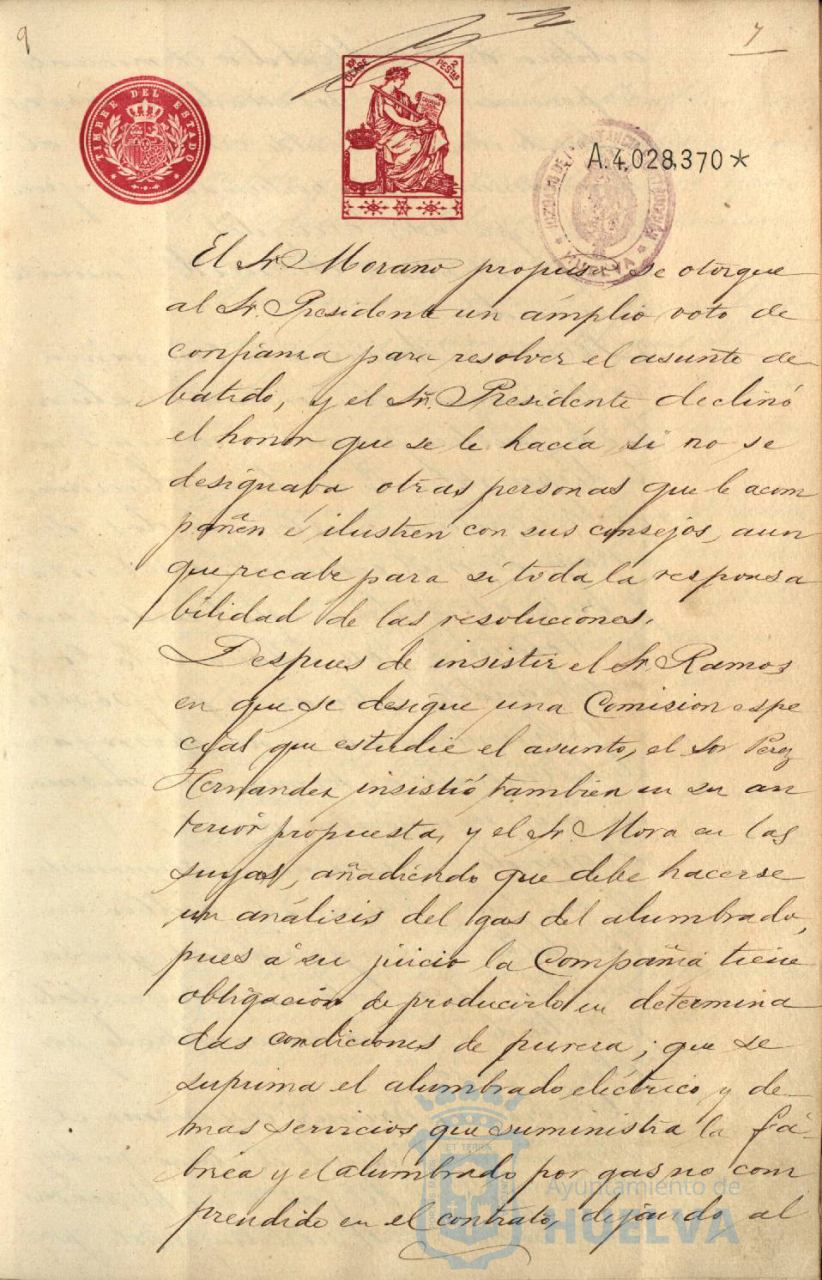 9
7
TIMBRE DEL ESTADO
CLASE
2 PESTAS
A.4,028,370*
HUELVA
El Sr. Morano propuso se otorgue
al Sr. Presidente un ámplio voto de
confianza para resolver el asunto de-
batido, y el Sr. Presidente declinó
el honor que se le hacía si no se
designava otras personas que le acom
pañen é ilustren con sus consejos, aun
que recabe para sí toda la responsa
bilidad de las resoluciónes.
Despues de insistir el Sr. Ramos
en que se designe una Comision espe
cial que estudie el asunto, el Sor Perez
Hernandez insistió tambien en su an
terior propuesta, y el Sr. Mora en las
suyas, añadiendo que debe hacerse
un análisis del gas del alumbrado,
pues á su juicio la Compañia tiene
obligación de producirlo en determina
das condiciones de pureza; que se
suprima el alumbrado eléctrico y de-
mas servicios que suministra la fá-
brica y el alumbrado por gas no com
prendido en el contrato, dejando al
Ayuntamiento de
HUELVA